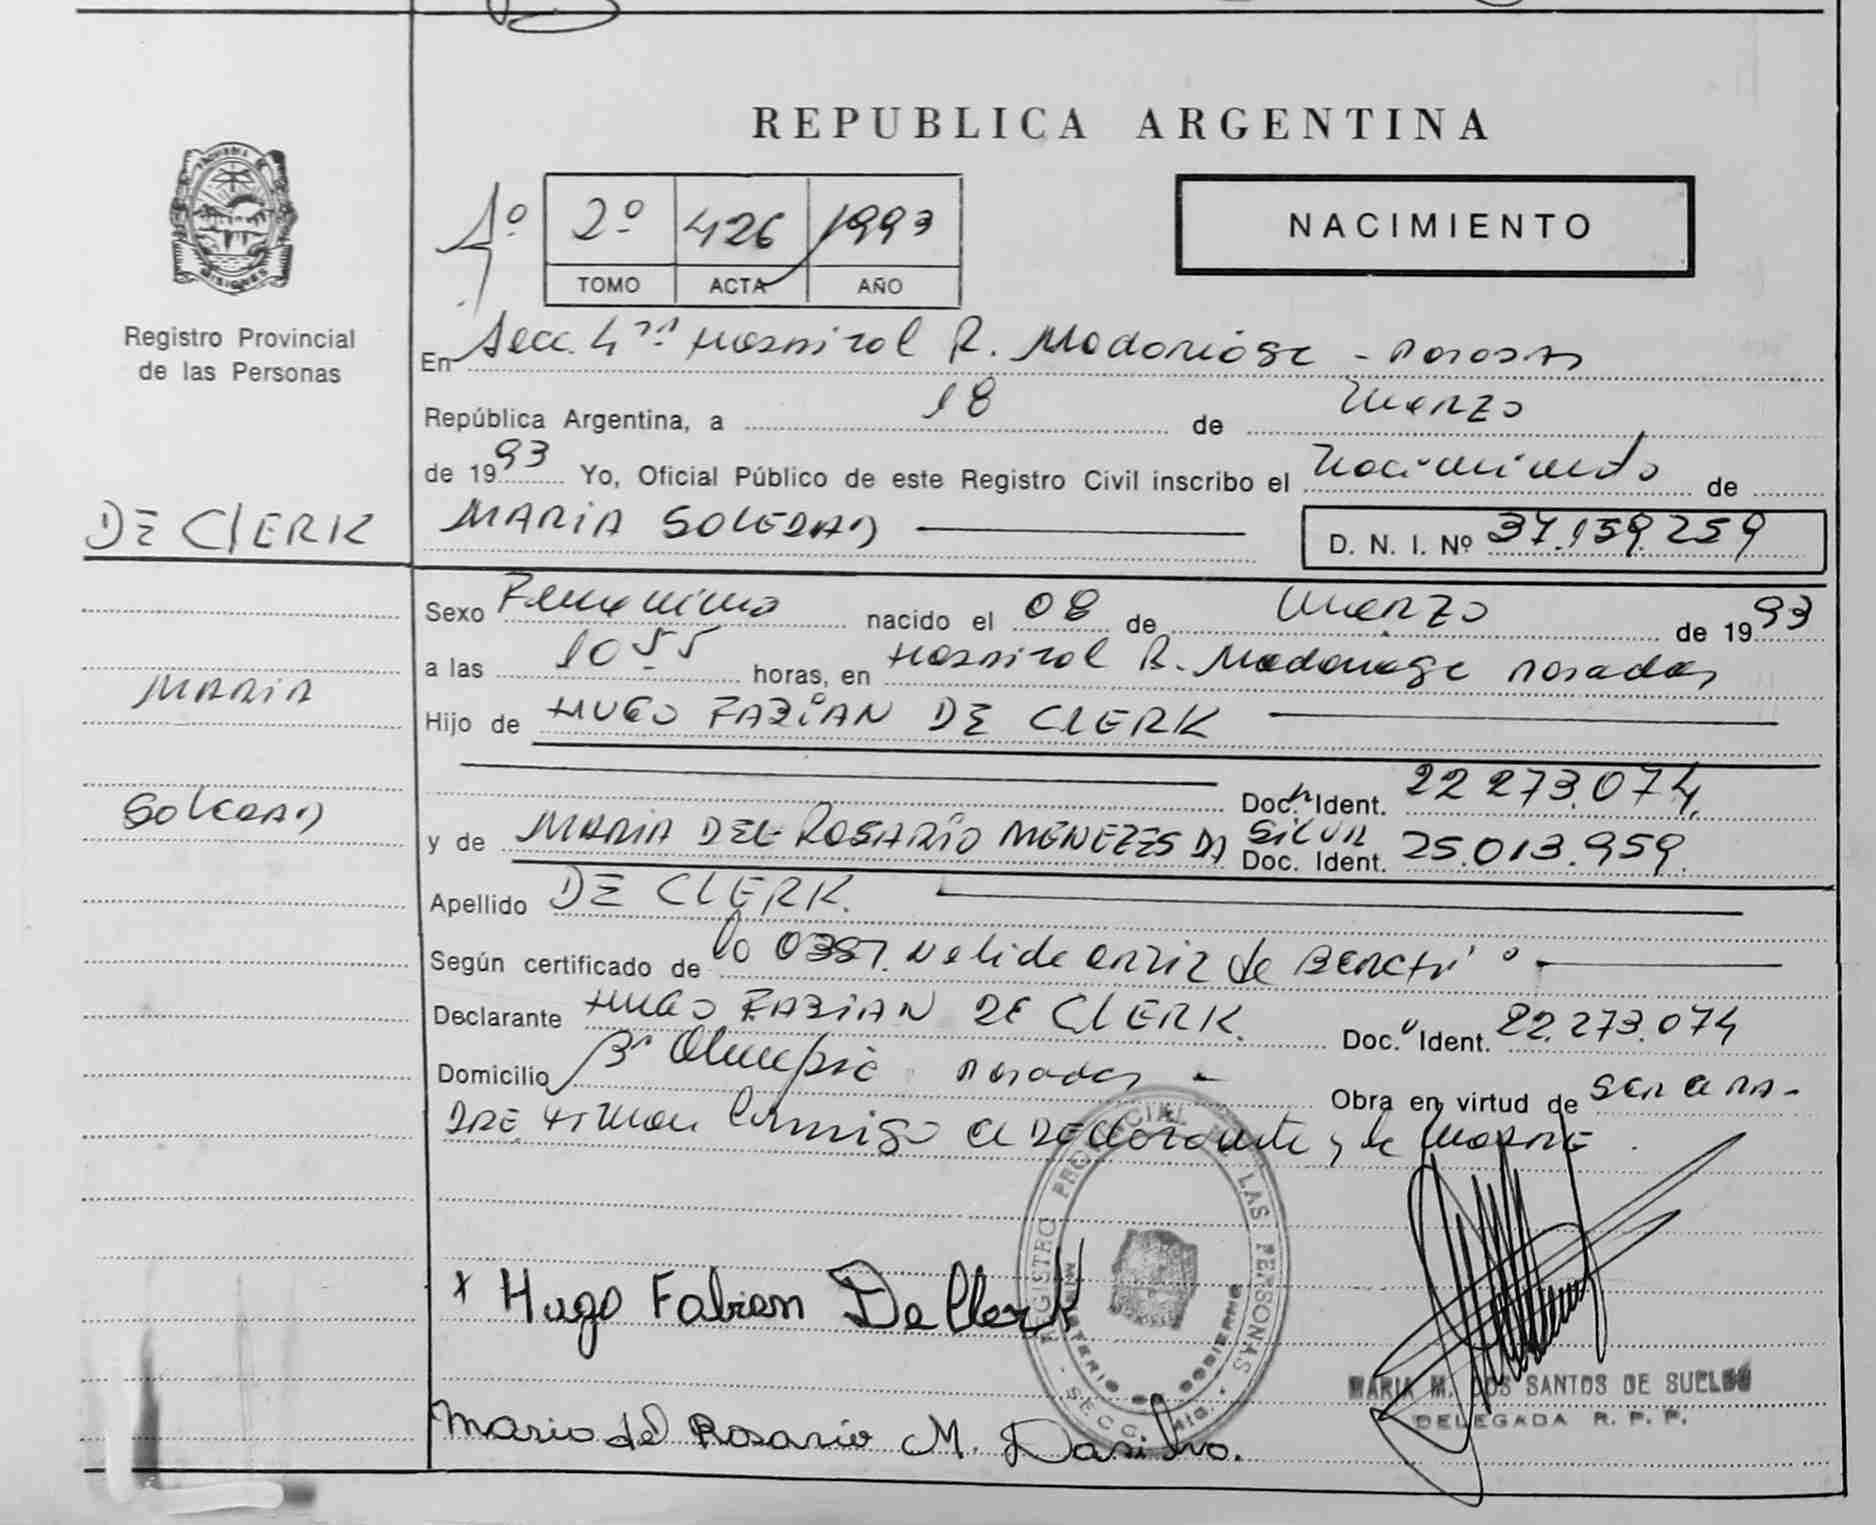 REPUBLICA ARGENTINA
NACIMIENTO
1º 2º 426 1993
TOMO ACTA AÑO
MISIONES
Registro Provincial
de las Personas
En Secc. 4ta Hospital R. Madariaga - Posadas
República Argentina, a 18 de Marzo
de 1993 Yo, Oficial Público de este Registro Civil inscribo el Nacimiento de
DE CLERK MARIA SOLEDAD D. N. I. Nº 37.159.259
Sexo Femenino nacido el 08 de Marzo de 1993
a las 10 55 horas, en Hospital R. Madariaga Posadas
MARIA
Hijo de HUGO FABIAN DE CLERK
Doc. Ident. 22 273.074
SOLEDAD
y de MARIA DEL ROSARIO MENEZES DA SILVA Doc. Ident. 25.013.959
Apellido DE CLERK.
Según certificado de de
Declarante HUGO FABIAN DE CLERK. Doc. Ident. 22.273.074
Domicilio Bº Posadas - Obra en virtud de SER EL PA-
DRE Firman Conmigo el DEclarante y la MADRE.
REGISTRO PROVINCIAL DE LAS PERSONAS
MINISTERIO DE GOBIERNO
SECC.
x Hugo Fabian De Clerk
MARIA M. DOS SANTOS DE SUELDO
DELEGADA R. P. P.
Maria del Rosario M. Dasilva.